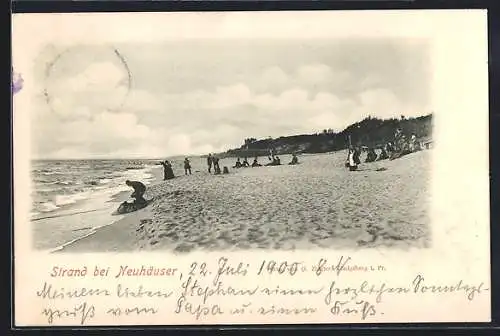 Strand bei Neuhäuser, 22. Juli 1900
Königsberg i. Pr.
Meinem lieben Stephan einen herzlichen Sonntags-
gruß vom Papa u. einen Kuß.